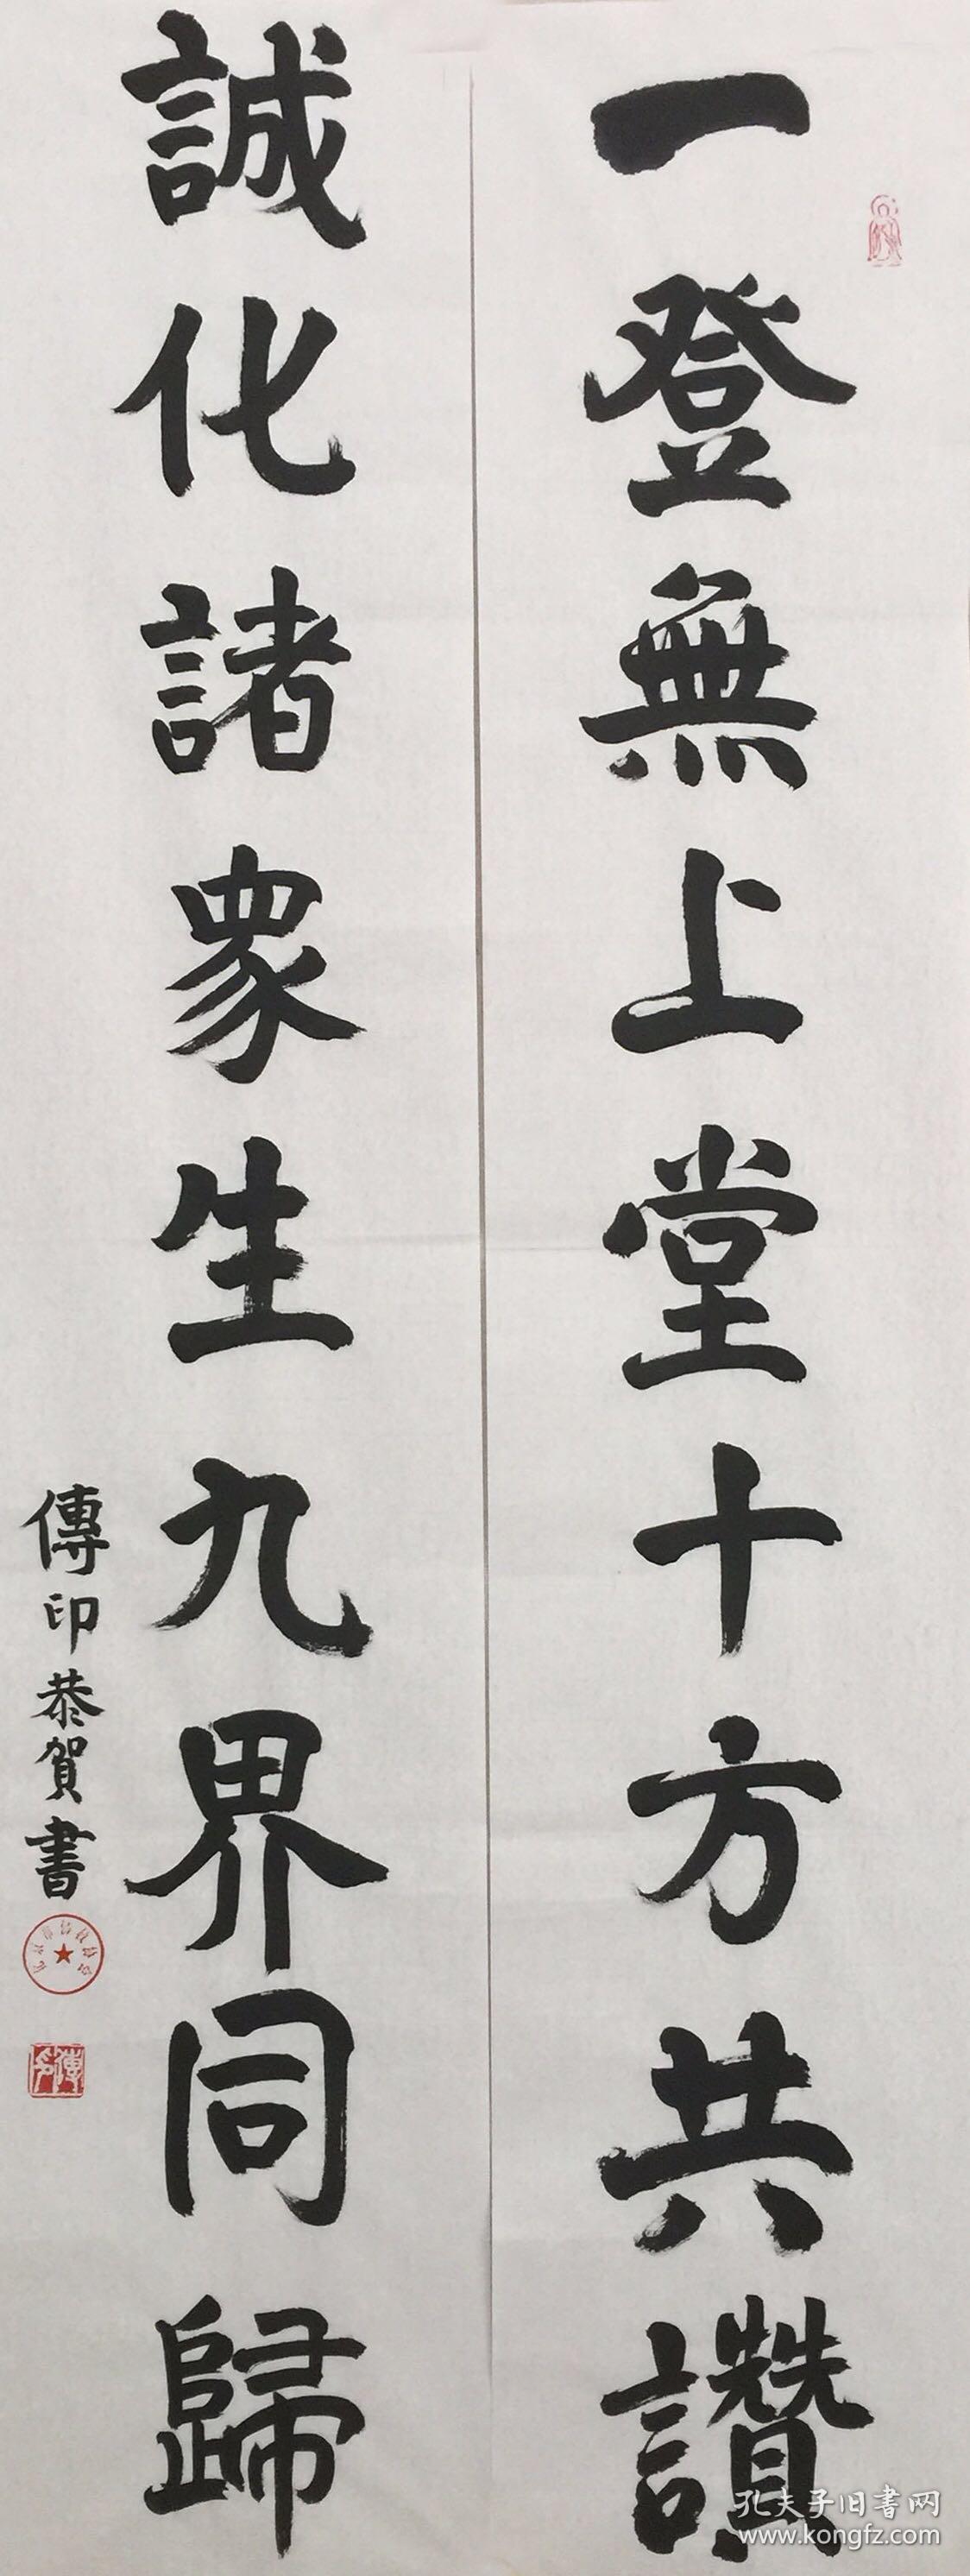 一登無上堂十方共讚
誠化諸眾生九界同歸
傳印恭賀書
傳印
孔夫子旧書网
www.kongfz.com